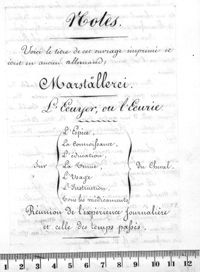 Notes.
Voici le titre de cet ouvrage imprimé et
écrit en ancien allemand,
Marställerei.
L'Ecuyer, ou l'Ecurie
L'Espèce,
La Connoissance,
L'éducation,
Sur La Tenue, du Cheval.
L'Usage
L'Instruction,
Tous les médicaments
Réunion de l'expérience journalière
et celle des temps passés.
1 2 3 4 5 6 7 8 9 10 11 12